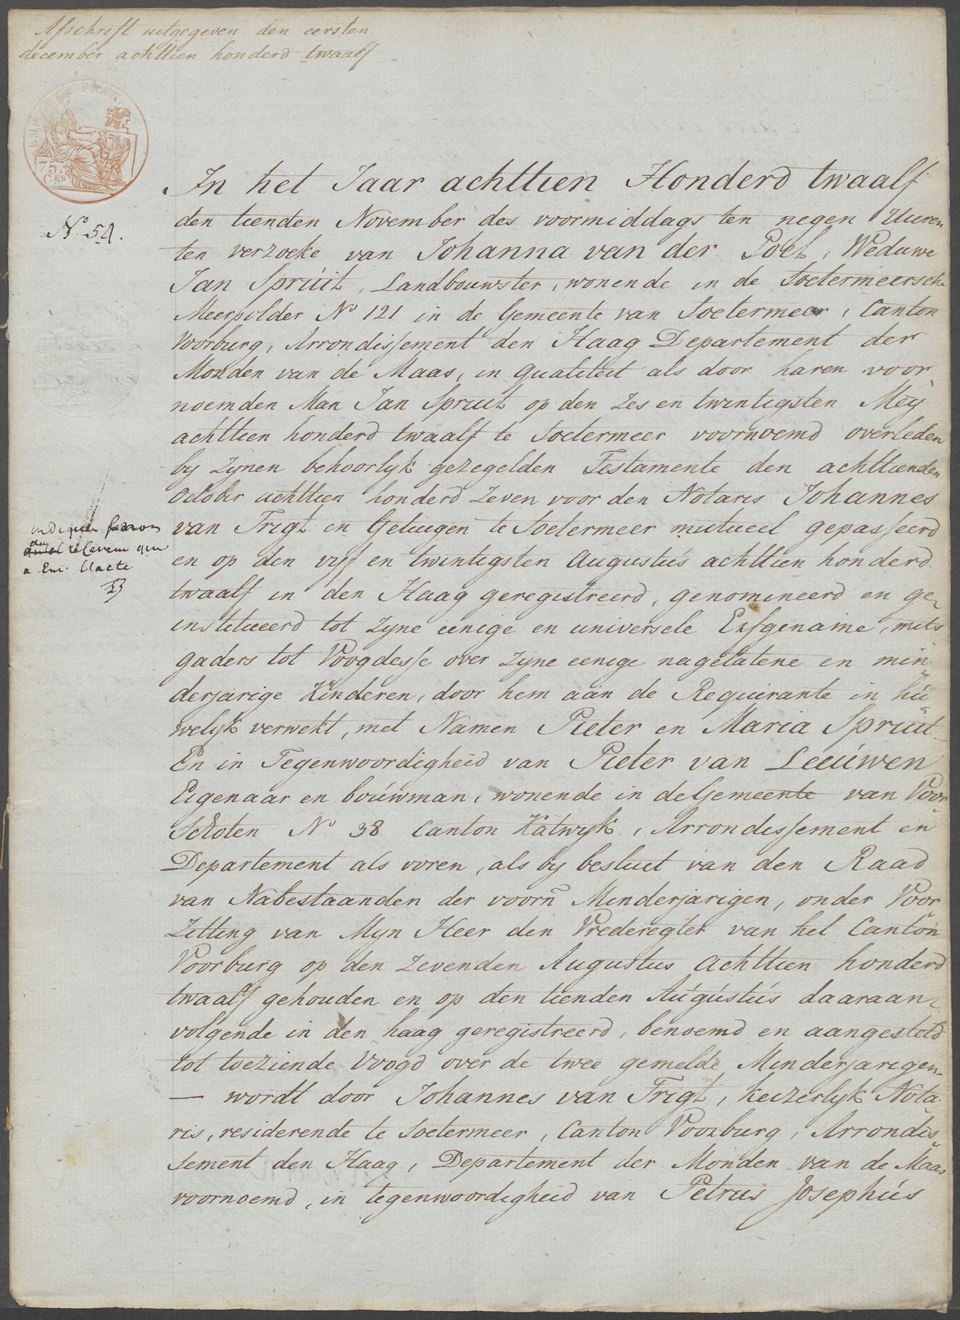 Afschrift uitgegeven den eersten
december achttien honderd twaalf
75.
Cts
No. 54.
In het Jaar achttien Honderd twaalf
den tienden November des voormiddags ten negen Uuren
ten verzoeke van Johanna van der Poel, Weduwe
Jan Spruit, Landbouwster, wonende in de Soetermeersche
Meerpolder No 121 in de Gemeente van Soetermeer, Canton
Voorburg, Arrondissement den Haag Departement der
Monden van de Maas, in Qualiteit als door haren voor
noemden Man Jan Spruit op den Zes en twintigsten Meij
achttien honderd twaalf te Soetermeer voornoemd overleden
by Zynen behoorlyk gezegelden Testamente den achttienden
October achttien honderd Zeven voor den Notaris Johannes
van Trigt en Getuigen te Soetermeer mutueel gepasseerd
en op den vyf en twintigsten Augustus achttien honderd
twaalf in den Haag geregistreerd, genomineerd en ge-
institueerd tot Zyne eenige en universele Erfgename, mits
gaders tot Voogdesse over Zyne eenige nagelatene en min
derjarige Kinderen, door hem aan de Requirante in hu
welyk verwekt, met Namen Pieter en Maria Spruit
En in Tegenwoordigheid van Pieter van Leeuwen
Eigenaar en bouwman, wonende in de Gemeente van Voor
Schoten No 38 Canton Katwyk, Arrondissement en
Departement als voren, als by besluit van den Raad
van Nabestaanden der voorn Minderjarigen, onder Voor
Zitting van Myn Heer den Vrederegter van het Canton
Voorburg op den Zevenden Augustus achttien honderd
twaalf gehouden en op den tienden Augustus daaraan-
volgende in den haag geregistreerd, benoemd en aangesteld
tot toeziende Voogd over de twee gemelde Minderjarigen
— wordt door Johannes van Trigt, Keizerlyk Nota-
ris, residerende te Soetermeer, Canton Voorburg, Arrondis
sement den Haag, Departement der Monden van de Maas
voornoemd, in tegenwoordigheid van Petrus Josephus